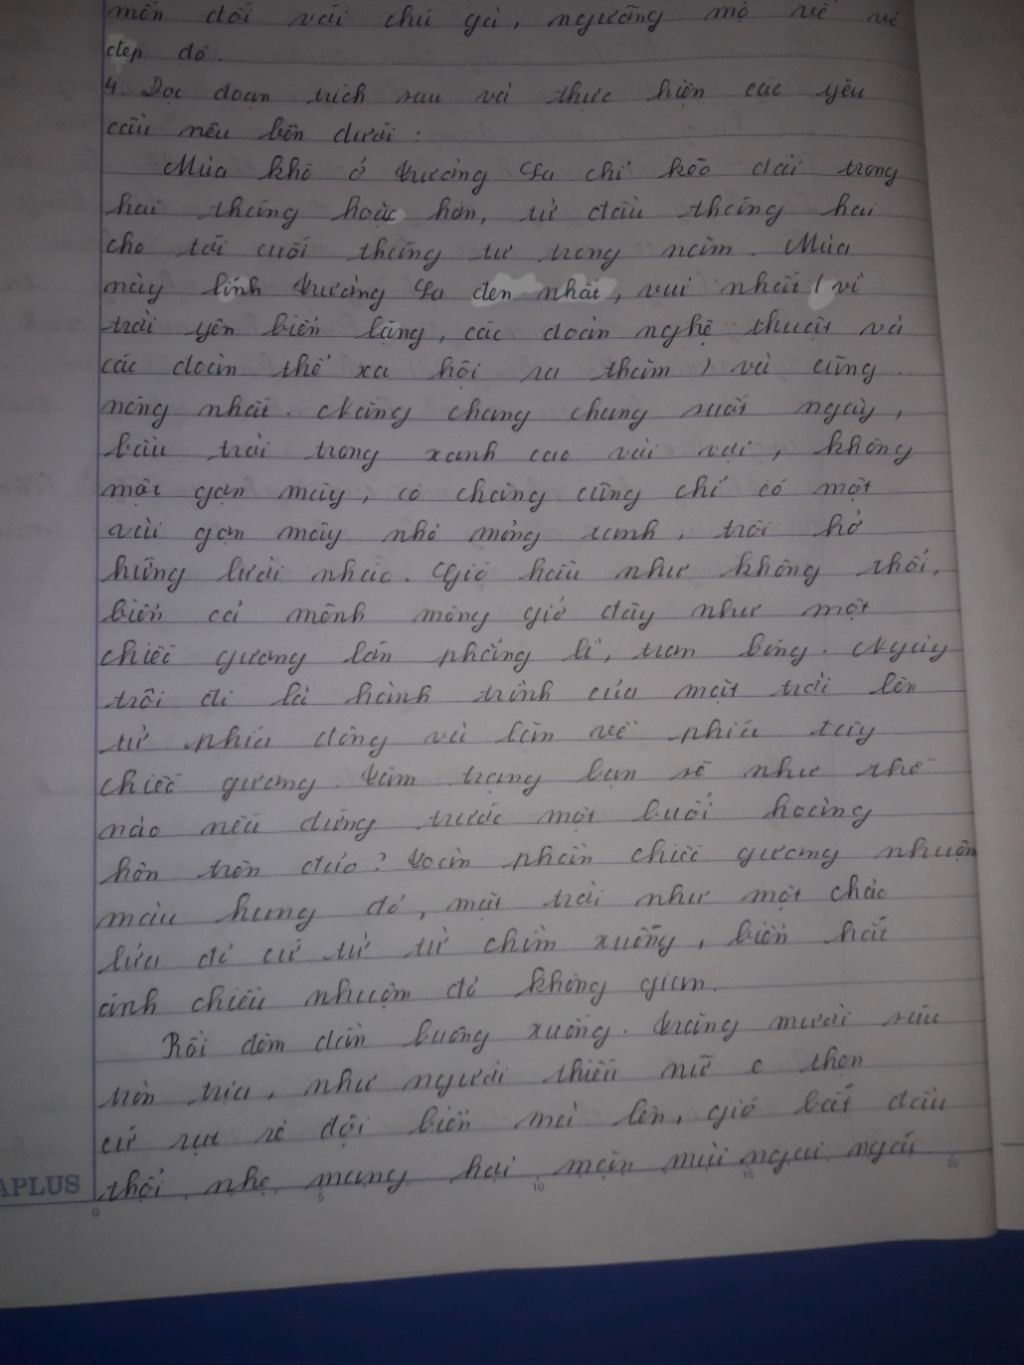 mến đối với chú gà, ngưỡng mộ về vẻ
đẹp đó.
4. Đọc đoạn trích sau và thực hiện các yêu
cầu nêu bên dưới:
Mùa khô ở Trường Sa chỉ kéo dài trong
hai tháng hoặc hơn, từ đầu tháng hai
cho tới cuối tháng tư trong năm. Mùa
này lính Trường Sa đen nhất, vui nhất (vì
trời yên biển lặng, các đoàn nghệ thuật và
các đoàn thể xa hội ra thăm) và cũng
nóng nhất. Nắng chang chang suốt ngày,
bầu trời trong xanh cao vời vợi, không
một gợn mây, có chăng cũng chỉ có một
vài gợn mây nhỏ mỏng tanh, trôi hờ
hững lười nhác. Gió hầu như không thổi,
biển cả mênh mông giờ đây như một
chiếc gương lớn phẳng lì, tran bóng. Ngày
trôi đi là hành trình của mặt trời lên
từ phía đông và lặn về phía tây
chiếc gương. Tâm trạng bạn sẽ như thế
nào nếu đứng trước một buổi hoàng
hôn trên đảo? Toàn phần chiếc gương nhuộm
màu hung đỏ, mặt trời như một chảo
lửa đỏ cứ từ từ chìm xuống, biển hắt
ánh chiều nhuộm đỏ không gian.
Rồi đêm dần buông xuống. Trăng mười sáu
tròn trịa, như người thiếu nữ e thẹn
cứ rụt rè đội biển mà lên, gió bắt đầu
thổi nhẹ mang hơi mặn mùi ngai ngái
APLUS
0 5 10 15 20